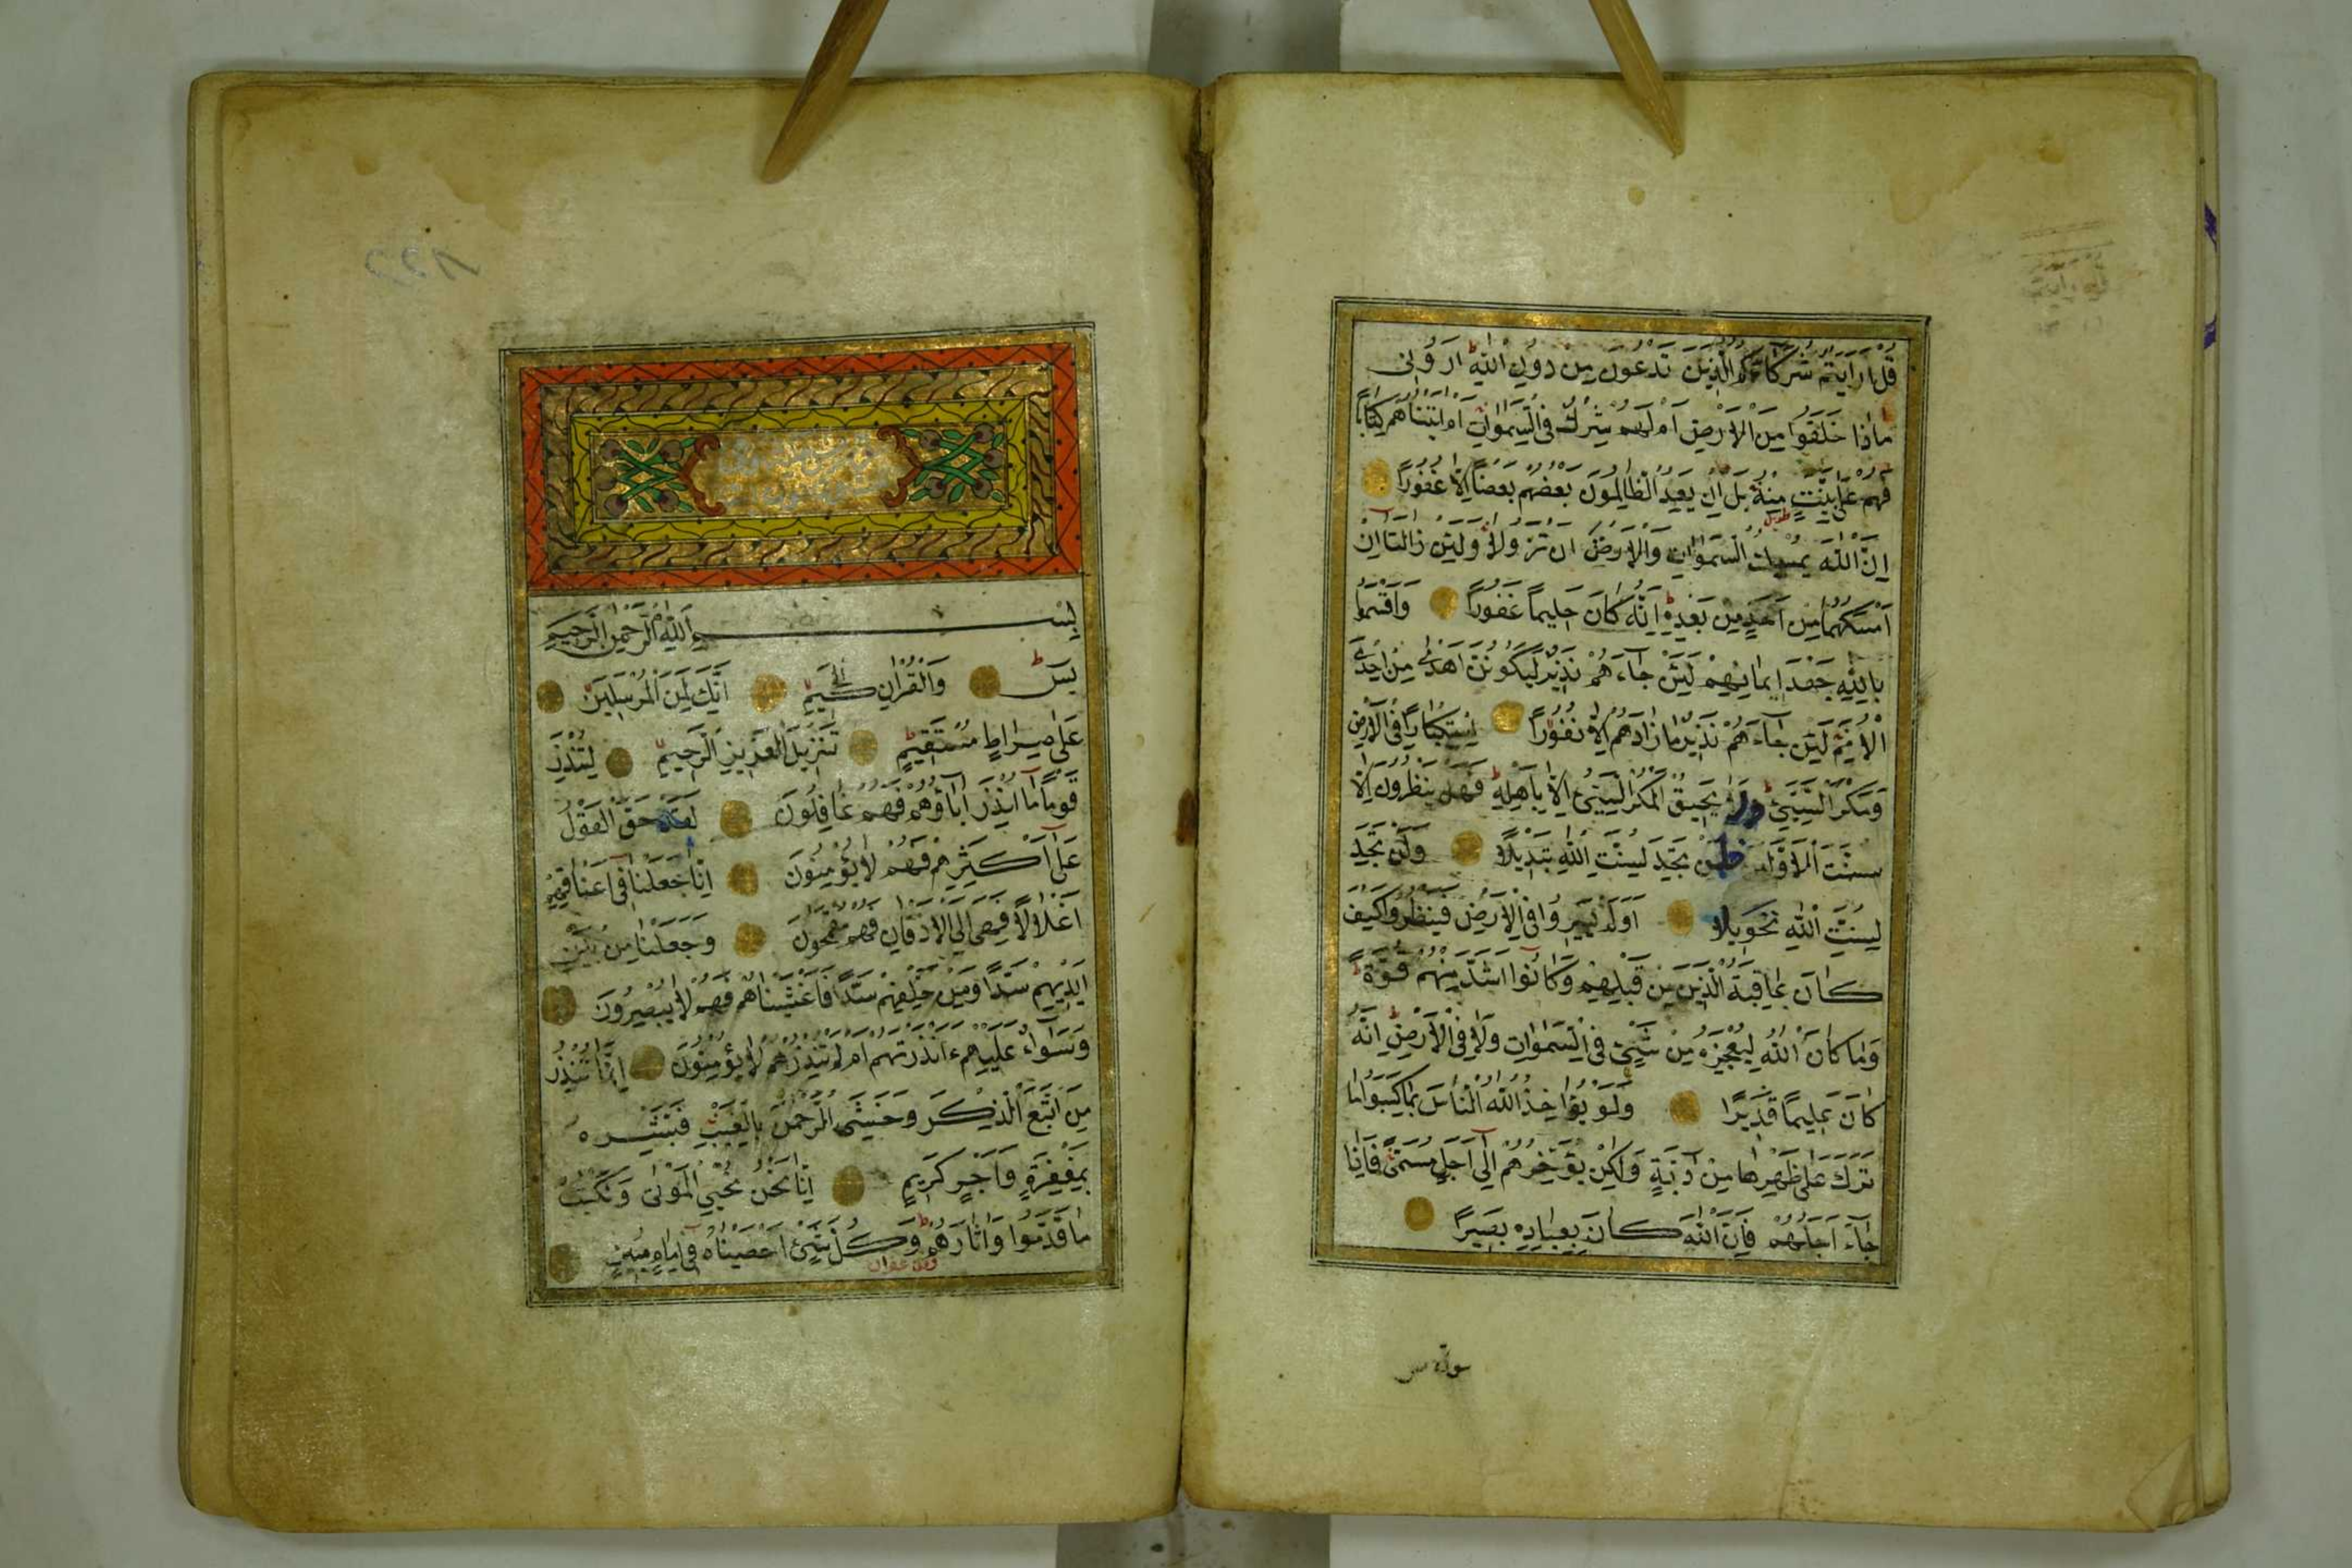 قُلْ اَرَاَيْتُمْ شُرَكَاءَكُمُ الَّذِينَ تَدْعُونَ مِنْ دُونِ اللّٰهِ اَرُونِى
مَاذَا خَلَقُوا مِنَ الْاَرْضِ اَمْ لَهُمْ شِرْكٌ فِى السَّمٰوَاتِ اَمْ اٰتَيْنَاهُمْ كِتَابًا
فَهُمْ عَلٰى بَيِّنَتٍ مِنْهُ بَلْ اِنْ يَعِدُ الظَّالِمُونَ بَعْضُهُمْ بَعْضًا اِلَّا غُرُورًا
اِنَّ اللّٰهَ يُمْسِكُ السَّمٰوَاتِ وَالْاَرْضَ اَنْ تَزُولَا وَلَئِنْ زَالَتَا اِنْ
اَمْسَكَهُمَا مِنْ اَحَدٍ مِنْ بَعْدِهِ اِنَّهُ كَانَ حَلِيمًا غَفُورًا وَاَقْسَمُوا
بِاللّٰهِ جَهْدَ اَيْمَانِهِمْ لَئِنْ جَاءَهُمْ نَذِيرٌ لَيَكُونُنَّ اَهْدٰى مِنْ اِحْدَى
الْاُمَمِ فَلَمَّا جَاءَهُمْ نَذِيرٌ مَا زَادَهُمْ اِلَّا نُفُورًا اِسْتِكْبَارًا فِى الْاَرْضِ
وَمَكْرَ السَّيِّئِ وَلَا يَحِيقُ الْمَكْرُ السَّيِّئُ اِلَّا بِاَهْلِهِ فَهَلْ يَنْظُرُونَ اِلَّا
سُنَّتَ الْاَوَّلِينَ فَلَنْ تَجِدَ لِسُنَّتِ اللّٰهِ تَبْدِيلًا وَلَنْ تَجِدَ
لِسُنَّتِ اللّٰهِ تَحْوِيلًا اَوَلَمْ يَسِيرُوا فِى الْاَرْضِ فَيَنْظُرُوا كَيْفَ
كَانَ عَاقِبَةُ الَّذِينَ مِنْ قَبْلِهِمْ وَكَانُوا اَشَدَّ مِنْهُمْ قُوَّةً
وَمَا كَانَ اللّٰهُ لِيُعْجِزَهُ مِنْ شَيْءٍ فِى السَّمٰوَاتِ وَلَا فِى الْاَرْضِ اِنَّهُ
كَانَ عَلِيمًا قَدِيرًا وَلَوْ يُؤَاخِذُ اللّٰهُ النَّاسَ بِمَا كَسَبُوا مَا
تَرَكَ عَلٰى ظَهْرِهَا مِنْ دَابَّةٍ وَلٰكِنْ يُؤَخِّرُهُمْ اِلٰى اَجَلٍ مُسَمًّى فَاِذَا
جَاءَ اَجَلُهُمْ فَاِنَّ اللّٰهَ كَانَ بِعِبَادِهِ بَصِيرًا
سورة يس
بِسْمِ اللّٰهِ الرَّحْمٰنِ الرَّحِيمِ
يٰسٓ وَالْقُرْاٰنِ الْحَكِيمِ اِنَّكَ لَمِنَ الْمُرْسَلِينَ
عَلٰى صِرَاطٍ مُسْتَقِيمٍ تَنْزِيلَ الْعَزِيزِ الرَّحِيمِ لِتُنْذِرَ
قَوْمًا مَا اُنْذِرَ اٰبَاؤُهُمْ فَهُمْ غَافِلُونَ لَقَدْ حَقَّ الْقَوْلُ
عَلٰى اَكْثَرِهِمْ فَهُمْ لَا يُؤْمِنُونَ اِنَّا جَعَلْنَا فِى اَعْنَاقِهِمْ
اَغْلَالًا فَهِىَ اِلَى الْاَذْقَانِ فَهُمْ مُقْمَحُونَ وَجَعَلْنَا مِنْ بَيْنِ
اَيْدِيهِمْ سَدًّا وَمِنْ خَلْفِهِمْ سَدًّا فَاَغْشَيْنَاهُمْ فَهُمْ لَا يُبْصِرُونَ
وَسَوَاءٌ عَلَيْهِمْ ءَاَنْذَرْتَهُمْ اَمْ لَمْ تُنْذِرْهُمْ لَا يُؤْمِنُونَ اِنَّمَا تُنْذِرُ
مَنِ اتَّبَعَ الذِّكْرَ وَخَشِىَ الرَّحْمٰنَ بِالْغَيْبِ فَبَشِّرْهُ
بِمَغْفِرَةٍ وَاَجْرٍ كَرِيمٍ اِنَّا نَحْنُ نُحْيِى الْمَوْتٰى وَنَكْتُبُ
مَا قَدَّمُوا وَاٰثَارَهُمْ وَكُلَّ شَيْءٍ اَحْصَيْنَاهُ فِى اِمَامٍ مُبِينٍ
وقف غفران